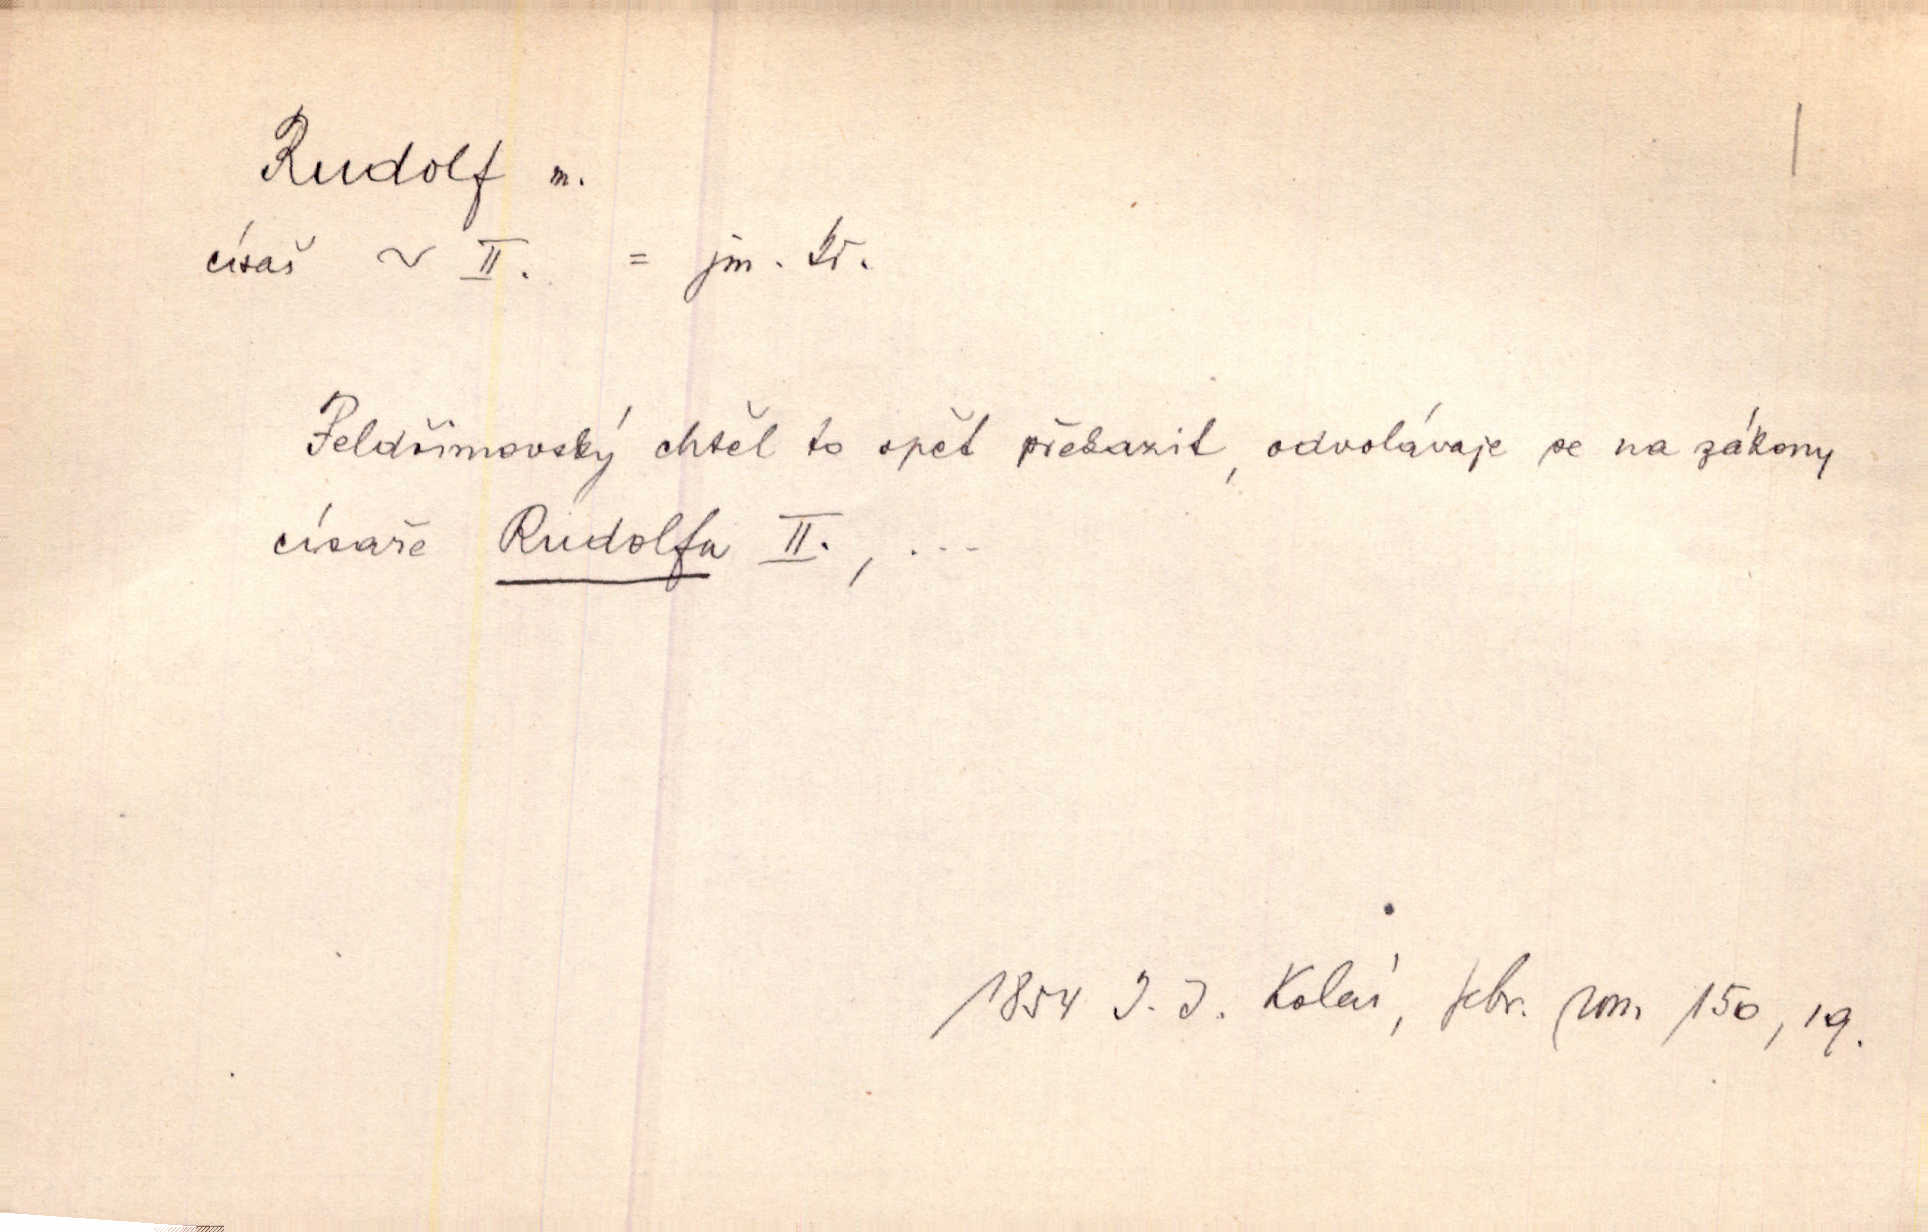 Rudolf m.
císař ~ II. = jm. kř.
Feldřimovský chtěl to opět překazit, odvolávaje se na zákony
císaře Rudolfa II., ...
1854 J. J. Kolár, febr. rom 150, 19.